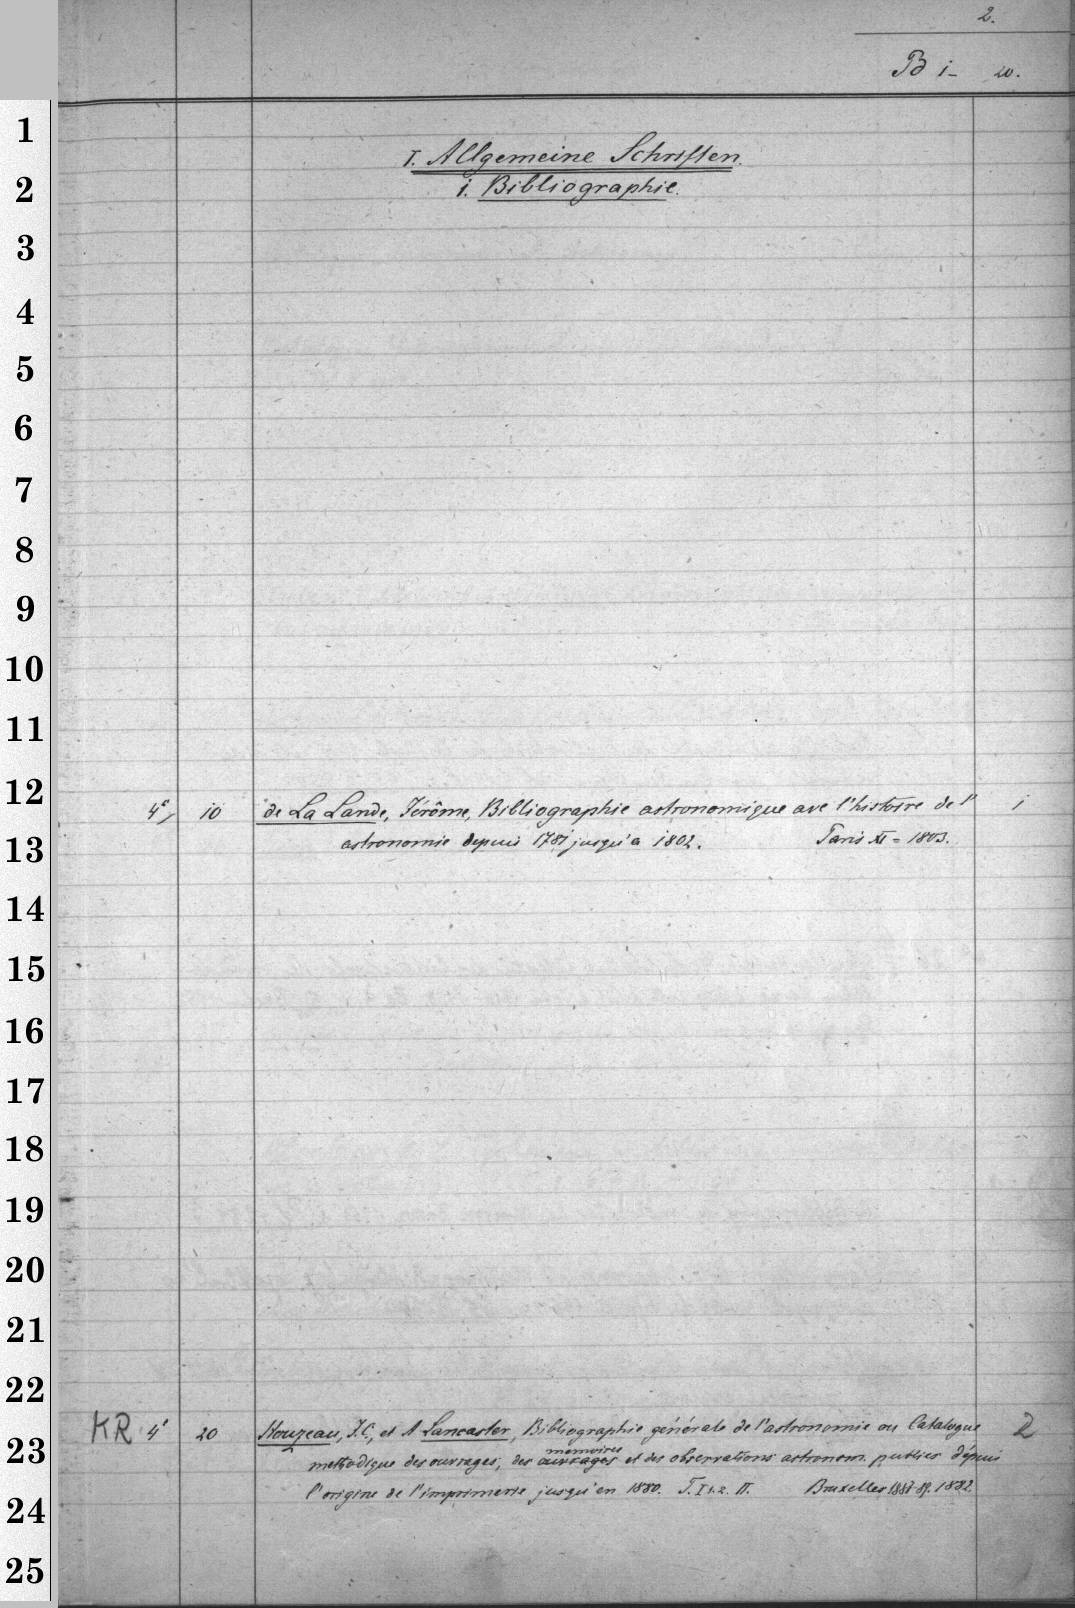 2.
Bd i- 20.
I. Allgemeine Schriften.
i. Bibliographie.
4°, 10 de La Lande, Jérôme, Bibliographie astronomique ave l'histoire de l' i
astronomie depuis 1781 jusqu'a 1802. Paris XI = 1803.
KR 4° 20 Houzeau, J.C, et A Lancaster, Bibliographie générale de l'astronomie ou Catalogue 2
mémoires
méthodique des ouvrages, des ouvrages et des observations astronom. publiés dépuis
l'origine de l'imprimerie jusqu'en 1880. T. I 1.2. II. Bruxelles 1887-89. 1882.
1
2
3
4
5
6
7
8
9
10
11
12
13
14
15
16
17
18
19
20
21
22
23
24
25